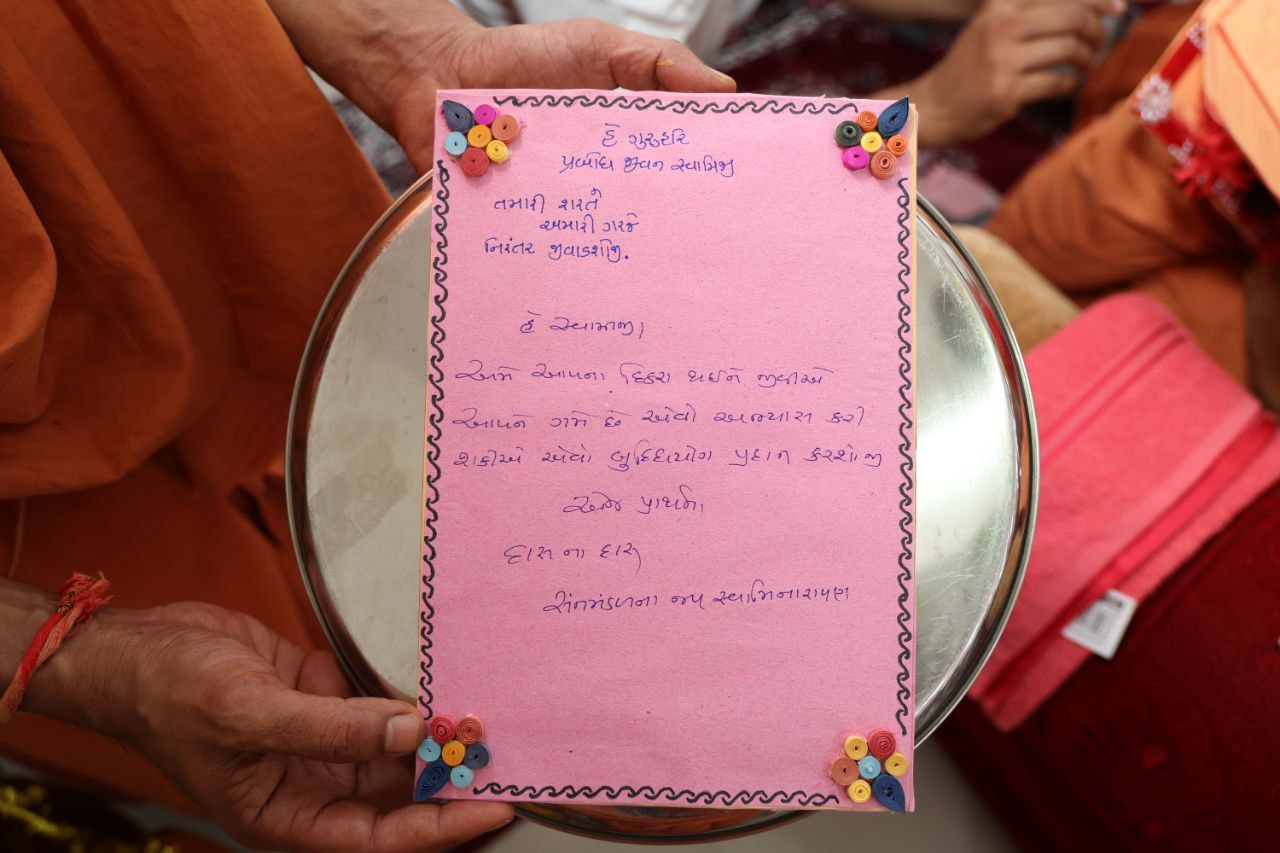 હે ગુરુહરિ
પ્રબોધ જીવન સ્વામિજી
તમારી શરતે
અમારી ગરજે
નિરંતર જીવાડશોજી.
હે સ્વામીજી,
અમે આપના દિકરા થઈને જીવીએ
આપને ગમે છે એવો અભ્યાસ કરી
શકીએ એવો બુધ્ધિયોગ પ્રદાન કરશોજી
એજ પ્રાર્થના
દાસ ના દાસ
સંતમંડળના જય સ્વામિનારાયણ